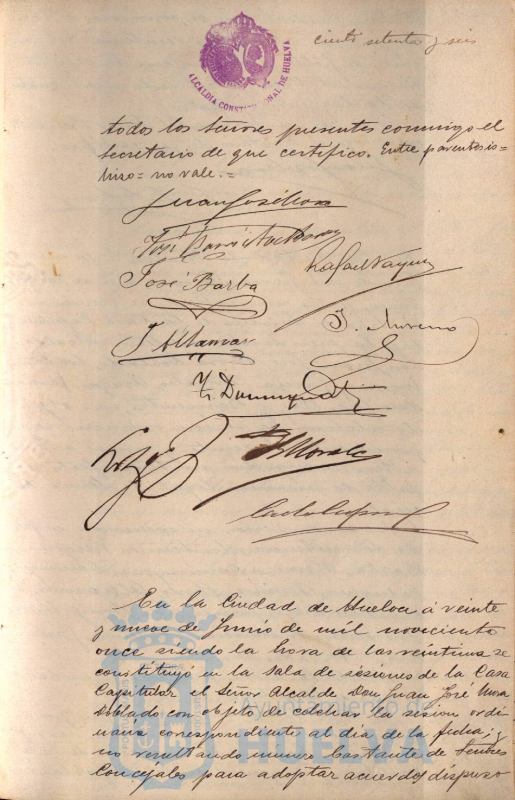 ciento setenta y seis
ALCALDIA CONSTITUCIONAL DE HUELVA
todos los señores presentes conmigo el
secretario de que certifico. Entre parentesis=
hizo=no vale.=
Juan José Mora
José
Rafael Vazquez
José Barba
J. Moreno
Morales
En la Ciudad de Huelva á veinte
y nueve de Junio de mil novecientos
once siendo la hora de las veintiuna se
constituyó en la sala de sesiones de la Casa
Capitular el Señor Alcalde Don Juan José Mora
Doblado con objeto de celebrar la sesion ordi-
naria correspondiente al dia de la fecha; y
no resultando numero bastante de Señores
Concejales para adoptar acuerdos dispuso
Ayuntamiento de
HUELVA